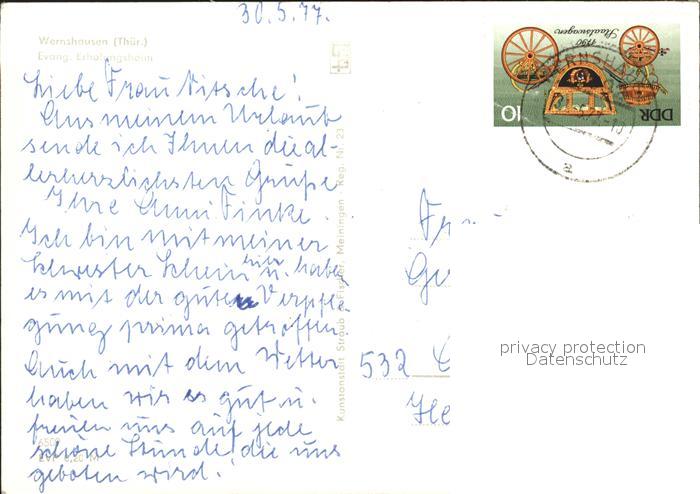 30.5.77.
Wernshausen (Thür.)
Evang. Erholungsheim
Liebe Frau Nitsche!
Aus meinem Urlaub
sende ich Ihnen die al-
lerherzlichsten Grüße
Ihre Anni Finke.
Ich bin mit meiner
Schwester hier u. haben
es mit der guten Verpfle-
gung prima getroffen.
Auch mit dem Wetter
haben wir es gut u.
freuen uns auf jede
schöne Stunde, die uns
geboten wird.
EVP 0,20 M
Kunstanstalt Straub & Fischer, Meiningen Reg. Nr. 23
Staatswagen
1790
10
DDR
WERNSHAUSEN
a
532
privacy protection
Datenschutz